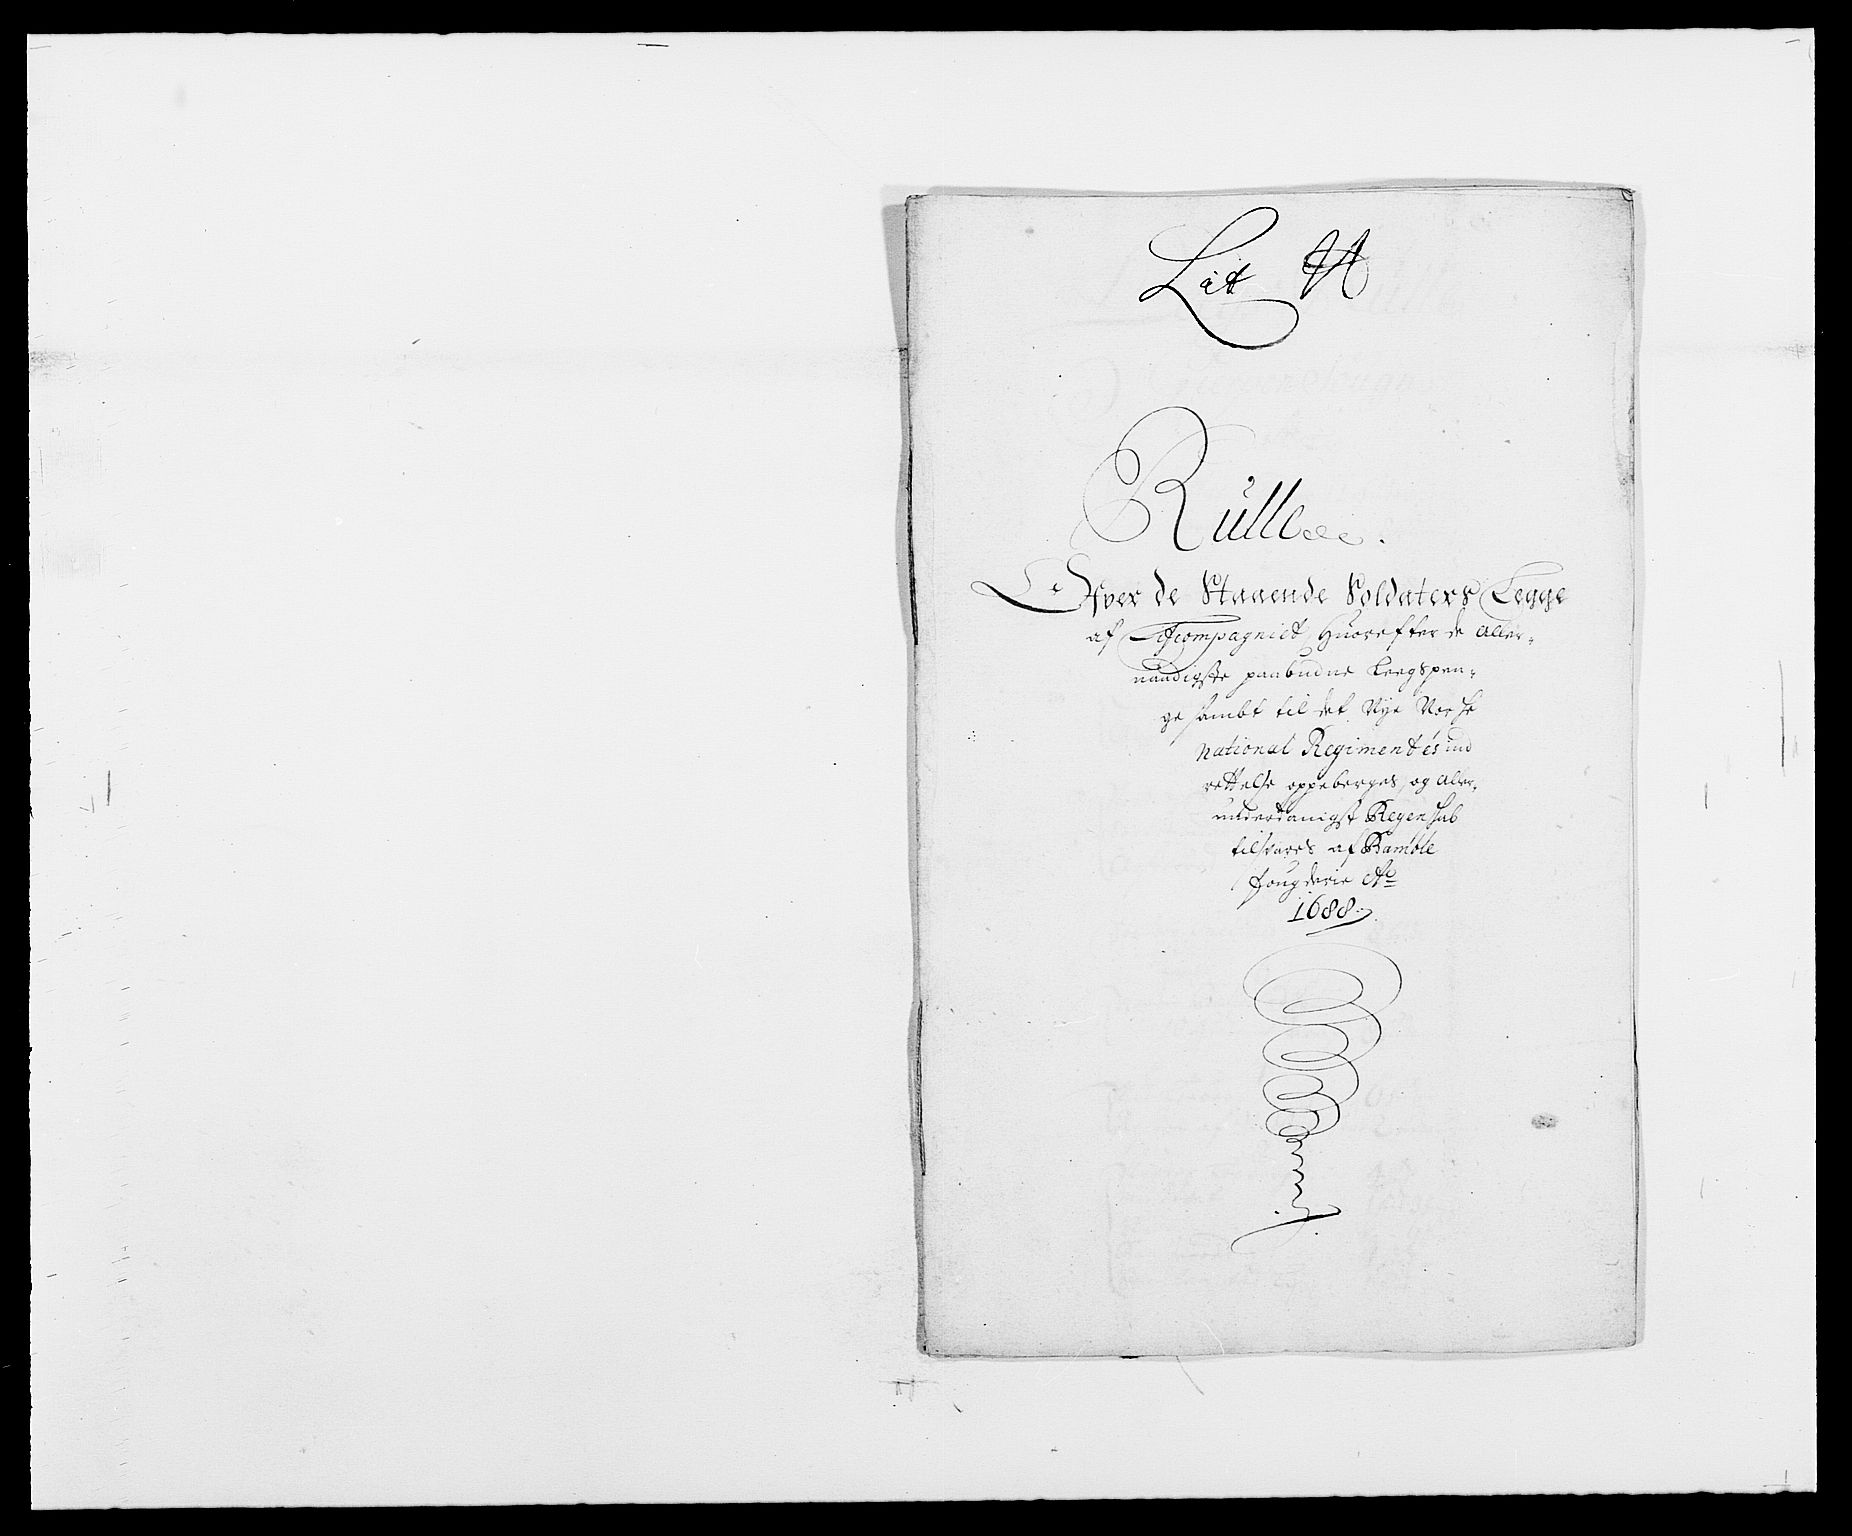 Lit A
Rulle
Ofver de Staaende Soldaters Legge
af Lifcompagniet, Huorefter de Aller-
naadigste paabudne Leegspen-
ge sambt til det Nye Norske
National Regimentes ind
rettelse oppeberges, og Aller-
underdanigst Regenskab
tilsvares af Bamble
fougderie Ao
1688